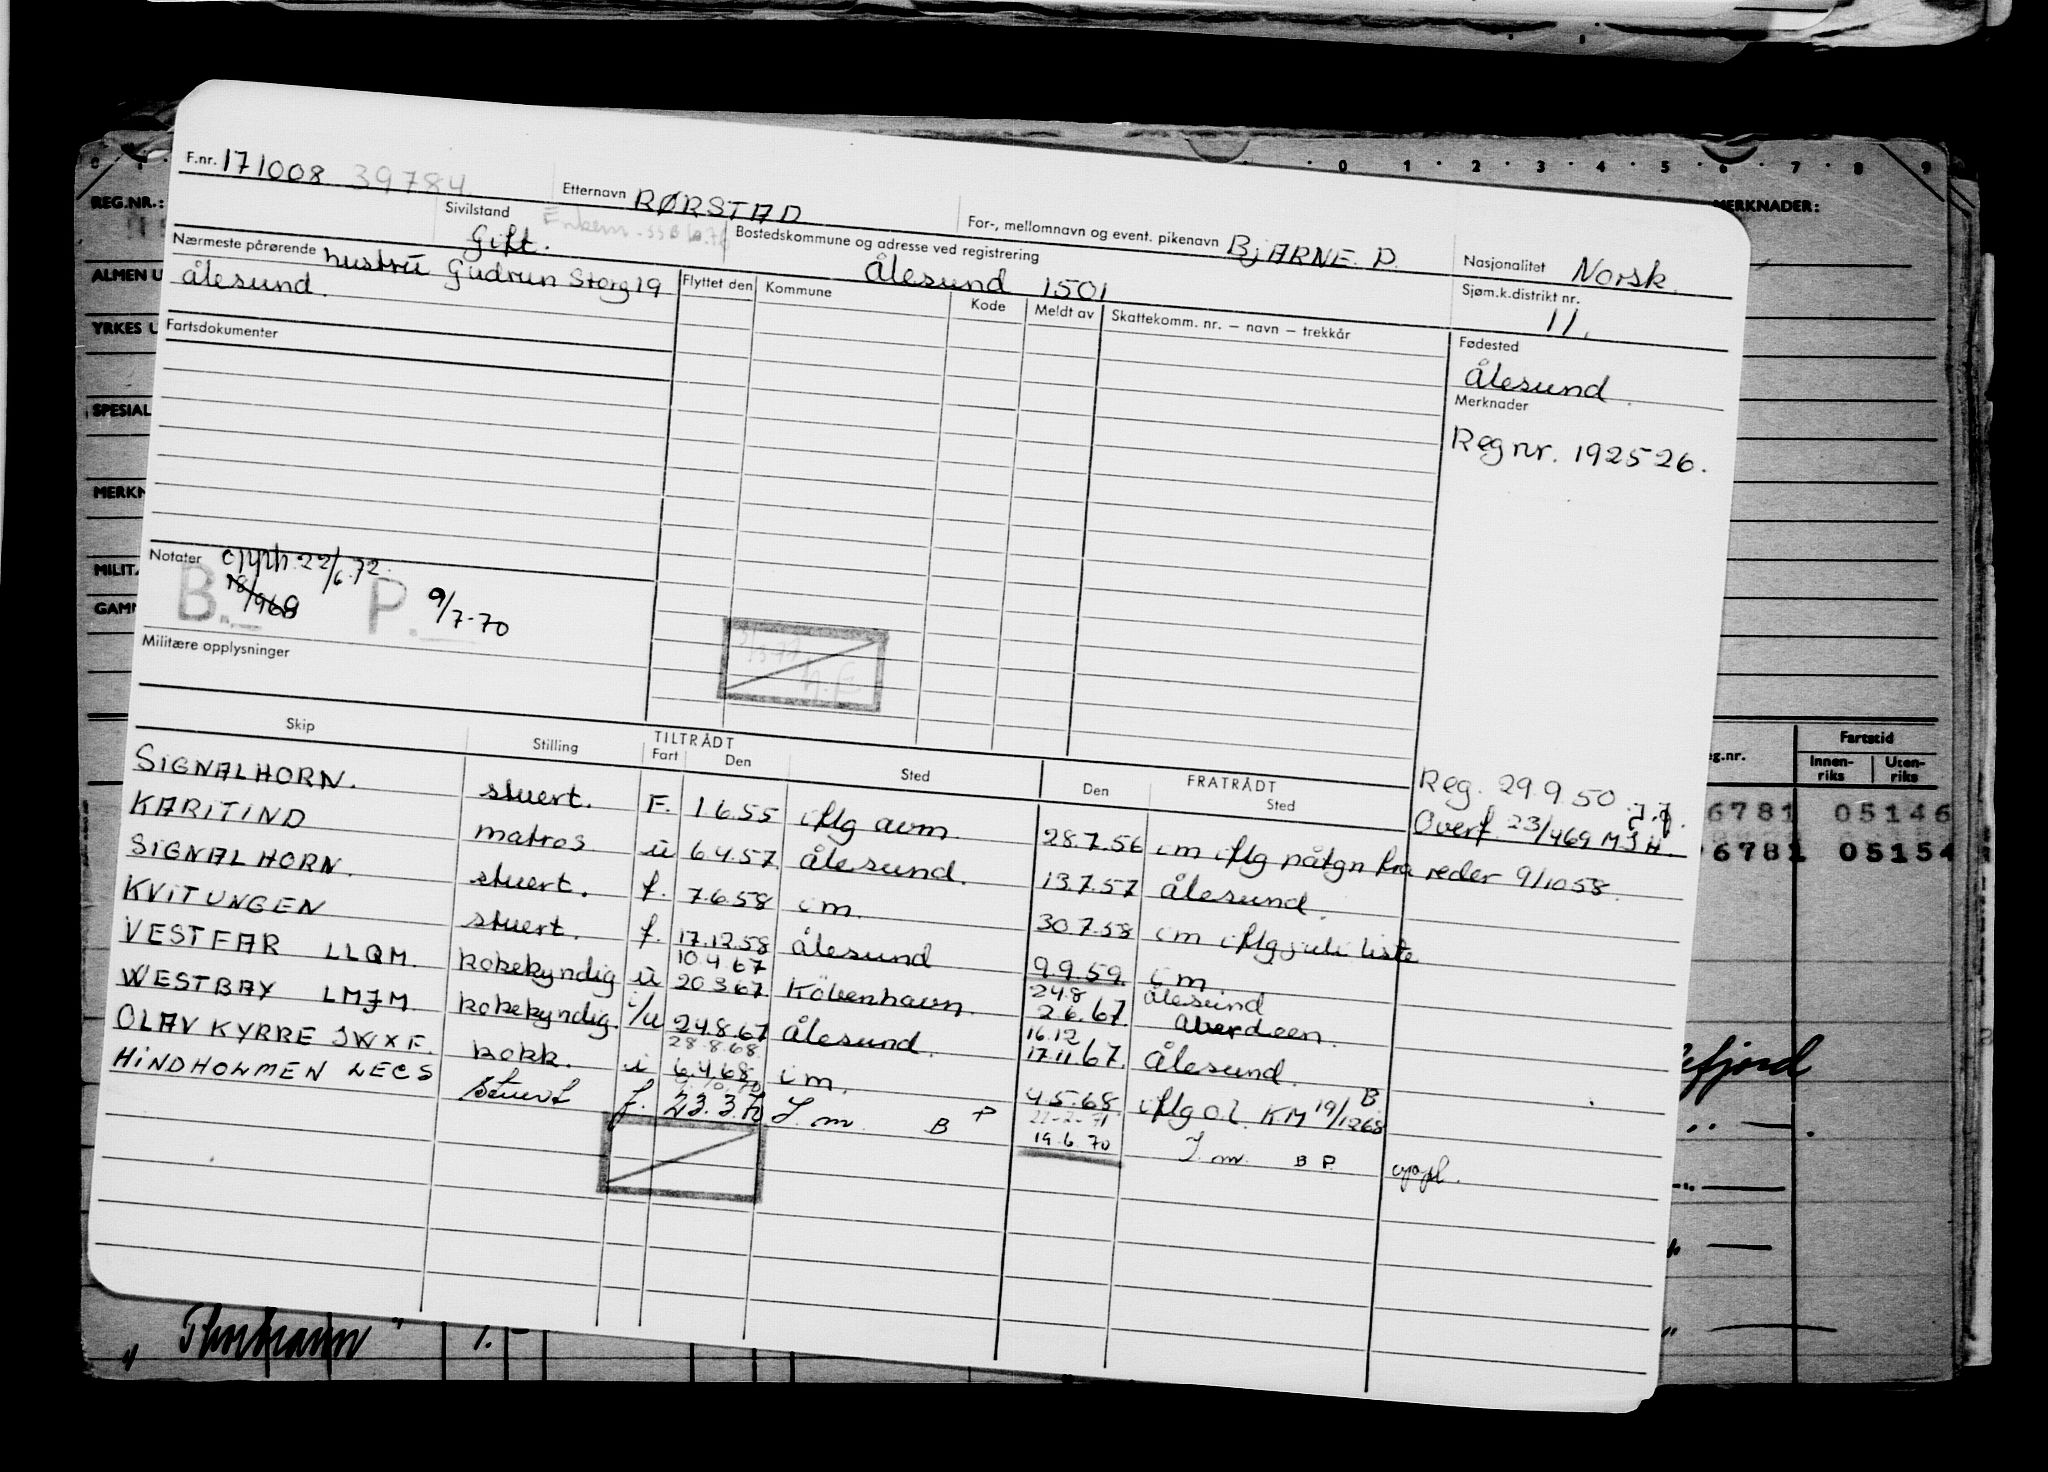 0 1 2 3 4 5 6 7 8 9
REG.NR.:
MERKNADER:
F.nr. 171008 39784 Etternavn RØRSTAD For-, mellomnavn og event. pikenavn BJARNE. P. Nasjonalitet Norsk.
Sivilstand Gift. Bostedskommune og adresse ved registrering Ålesund 1501 Sjøm.k.distrikt nr. 11.
Nærmeste pårørende hustru Gudrun Storg 19
ålesund.
Flyttet den Kommune Kode Meldt av Skattekomm. nr. – navn – trekkår Fødested
Ålesund.
Fartsdokumenter
Merknader
Regnr. 192526.
ALMEN U
YRKES U
SPESIAL
MERKN
MILIT
GAMM
Notater opph. 22/6.72.
B. 18/969 P. 9/7-70
Militære opplysninger
Reg. 29.9.50
Overf 23/469 MJH.
Skip Stilling TILTRÅDT Fart Den Sted FRATRÅDT Den Sted
SIGNALHORN. stuert. F. 1.6.55 iflg avm 28.7.56 i m iflg påtgn fra reder 9/10 58.
KARITIND matros u 6.4.57 ålesund. 13.7.57 ålesund.
SIGNALHORN. stuert. f. 7.6.58 i m. 30.7.58 i m iflg juli liste
KVITUNGEN stuert. f. 17.12.58 ålesund 9.9.59 i m
VESTFAR LLQM. kokekyndig u 10.4.67 20367 København 24.8 2.6.67. ålesund Aberdeen.
WESTBAY LMJM kokekyndig. i/u 24.8.67 ålesund. 16.12 17.11.67. ålesund.
OLAV KYRRE JWXF. kokk. i 28.8.68. 6.4.68 i m. 4.5.68. iflg o.l. KM 19/1268 B
HINDHOLMEN LECS stuert f. 23.3.70 I. m. B P 22-2-71 19.6.70 I. m. B P. oppl.
eg.nr. Fartstid
Innen-riks Uten-riks
6781 05146
6781 05154
efjord
" Thorhavn " 1. –